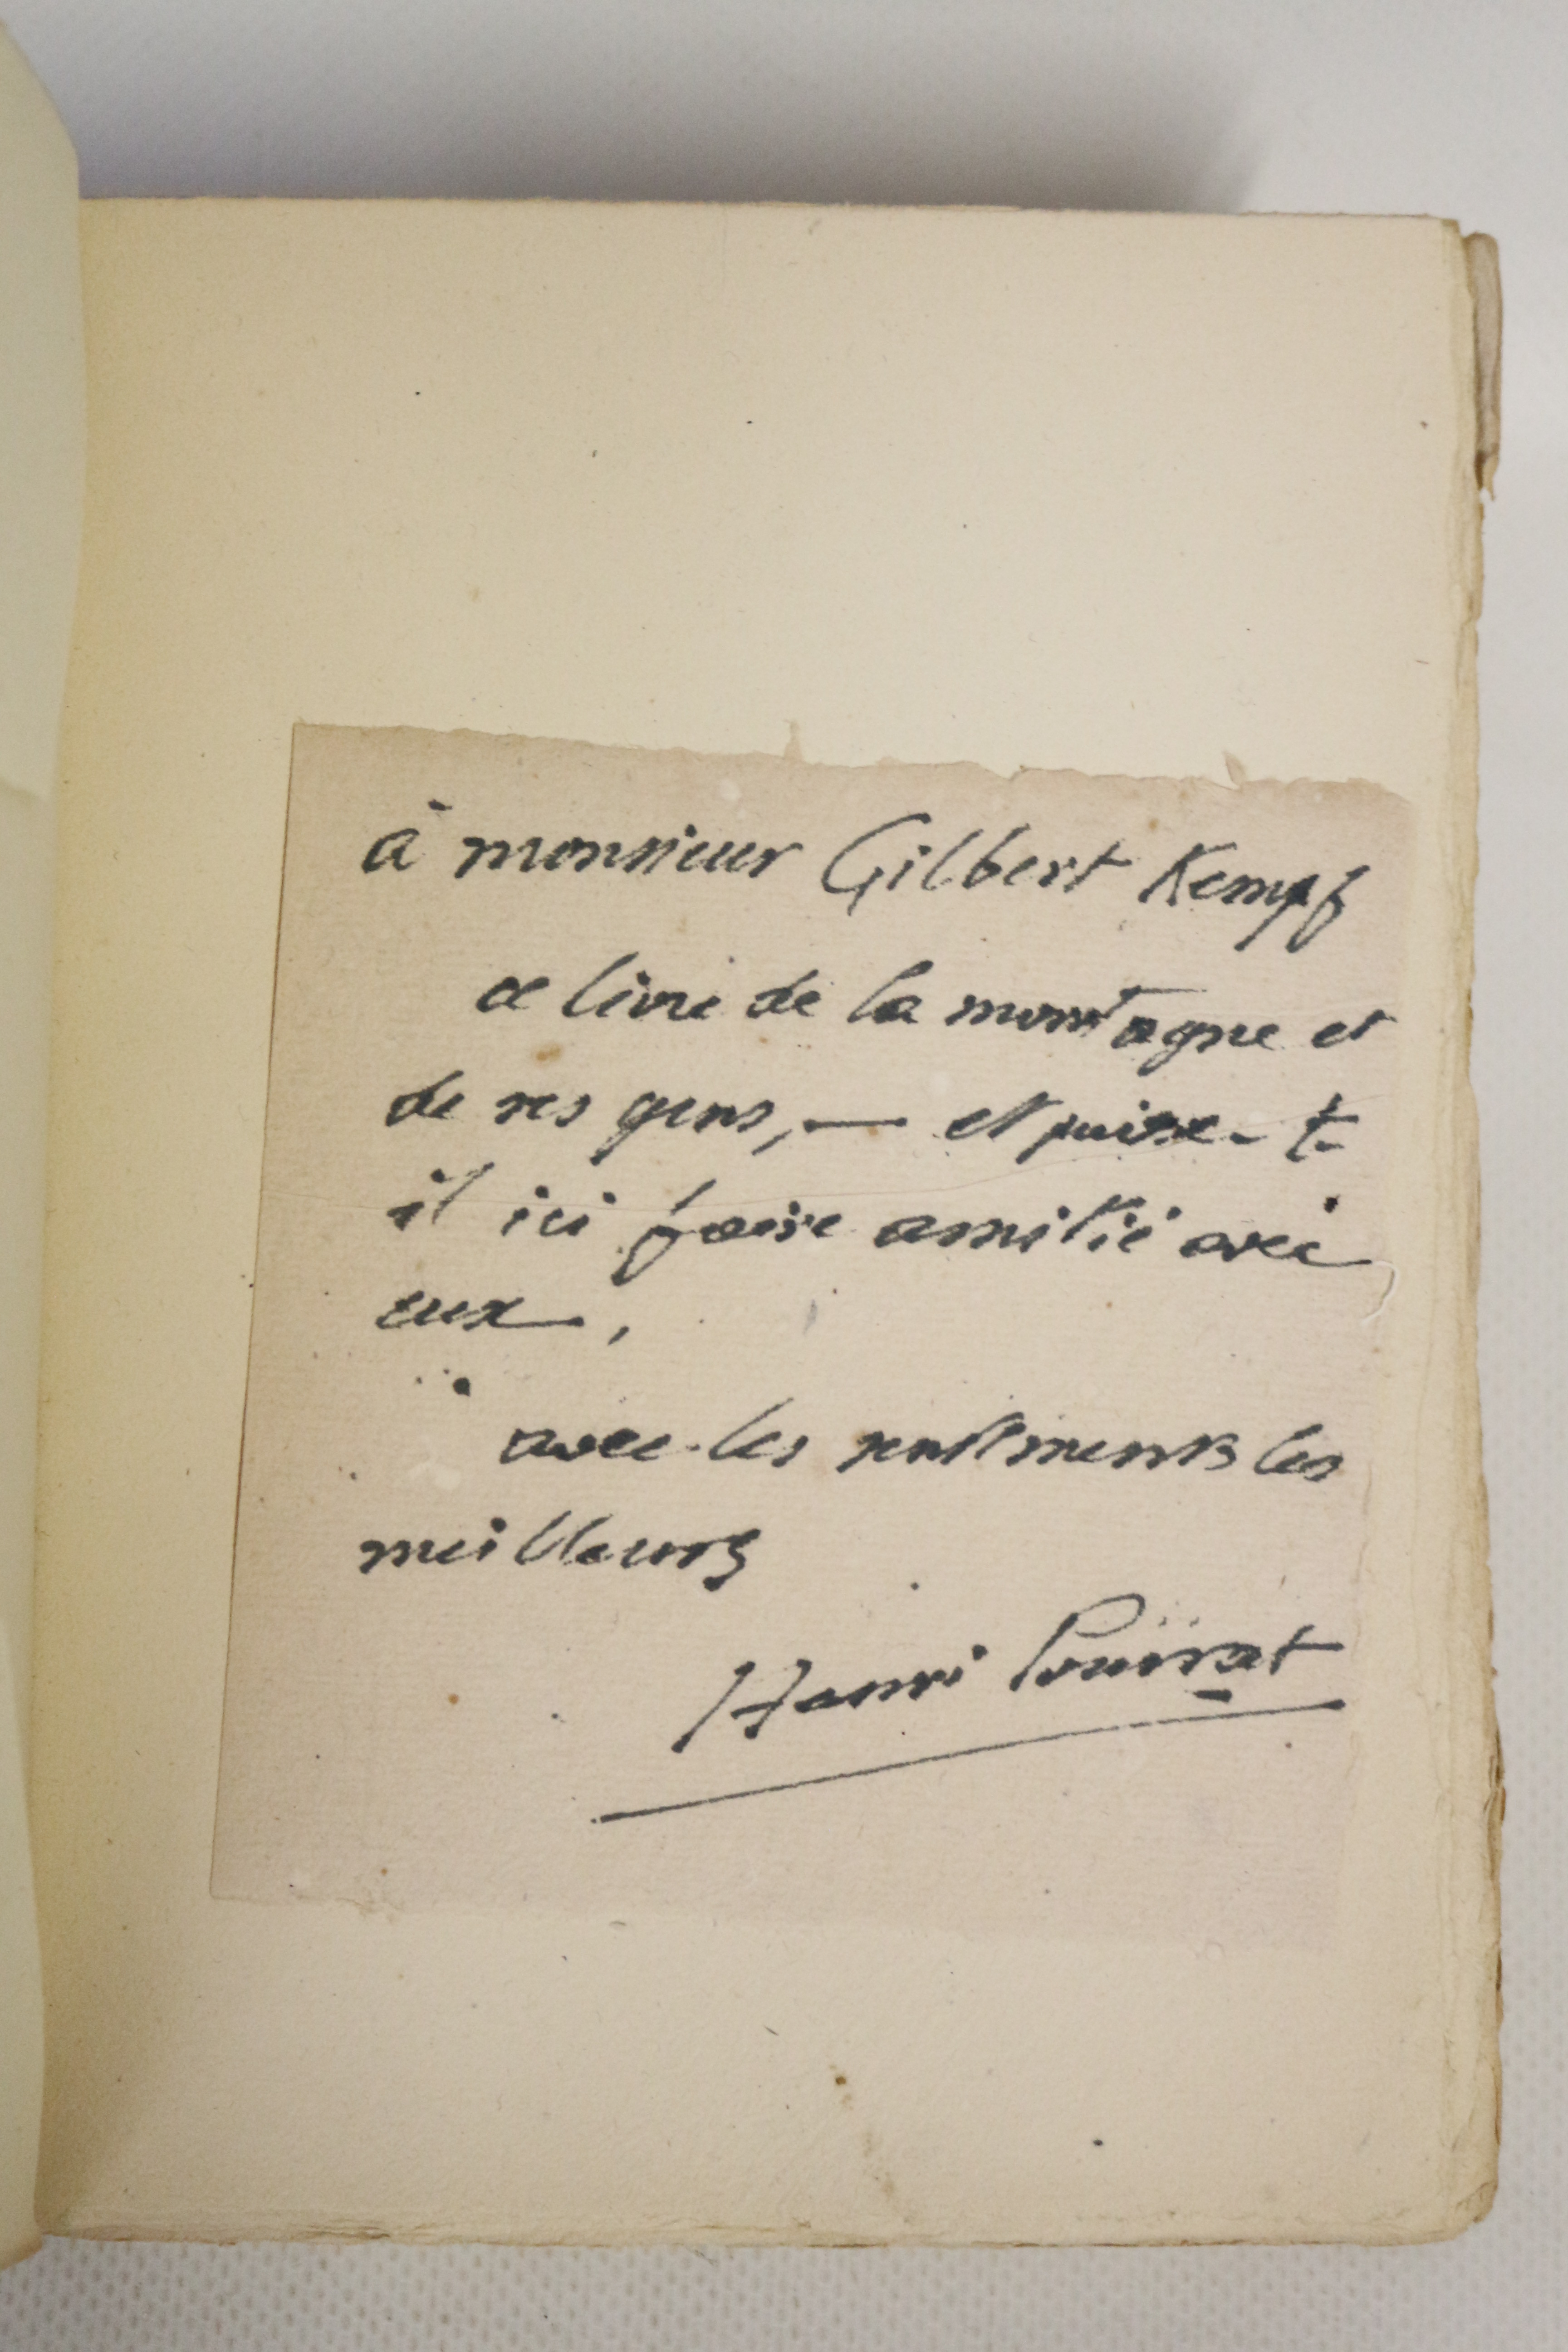 à monsieur Gilbert Kempf
ce livre de la montagne et
de ses gens, — et puisse-t-
il ici faire amitié avec
eux,
avec les sentiments les
meilleurs
Henri Pourrat